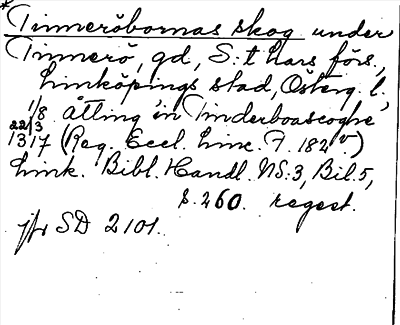 *Tinneröbornas skog under
Tinnerö, gd, S:t Lars förs.,
Linköpings stad, Österg. l.,
1/8 ātting in Tinderboascoghe
22/3
1317 (Reg. Eccl. Linc. F. 182 v)
Link. Bibl. Handl. NS:3, Bil. 5,
s. 260. regest.
jfr SD 2101.